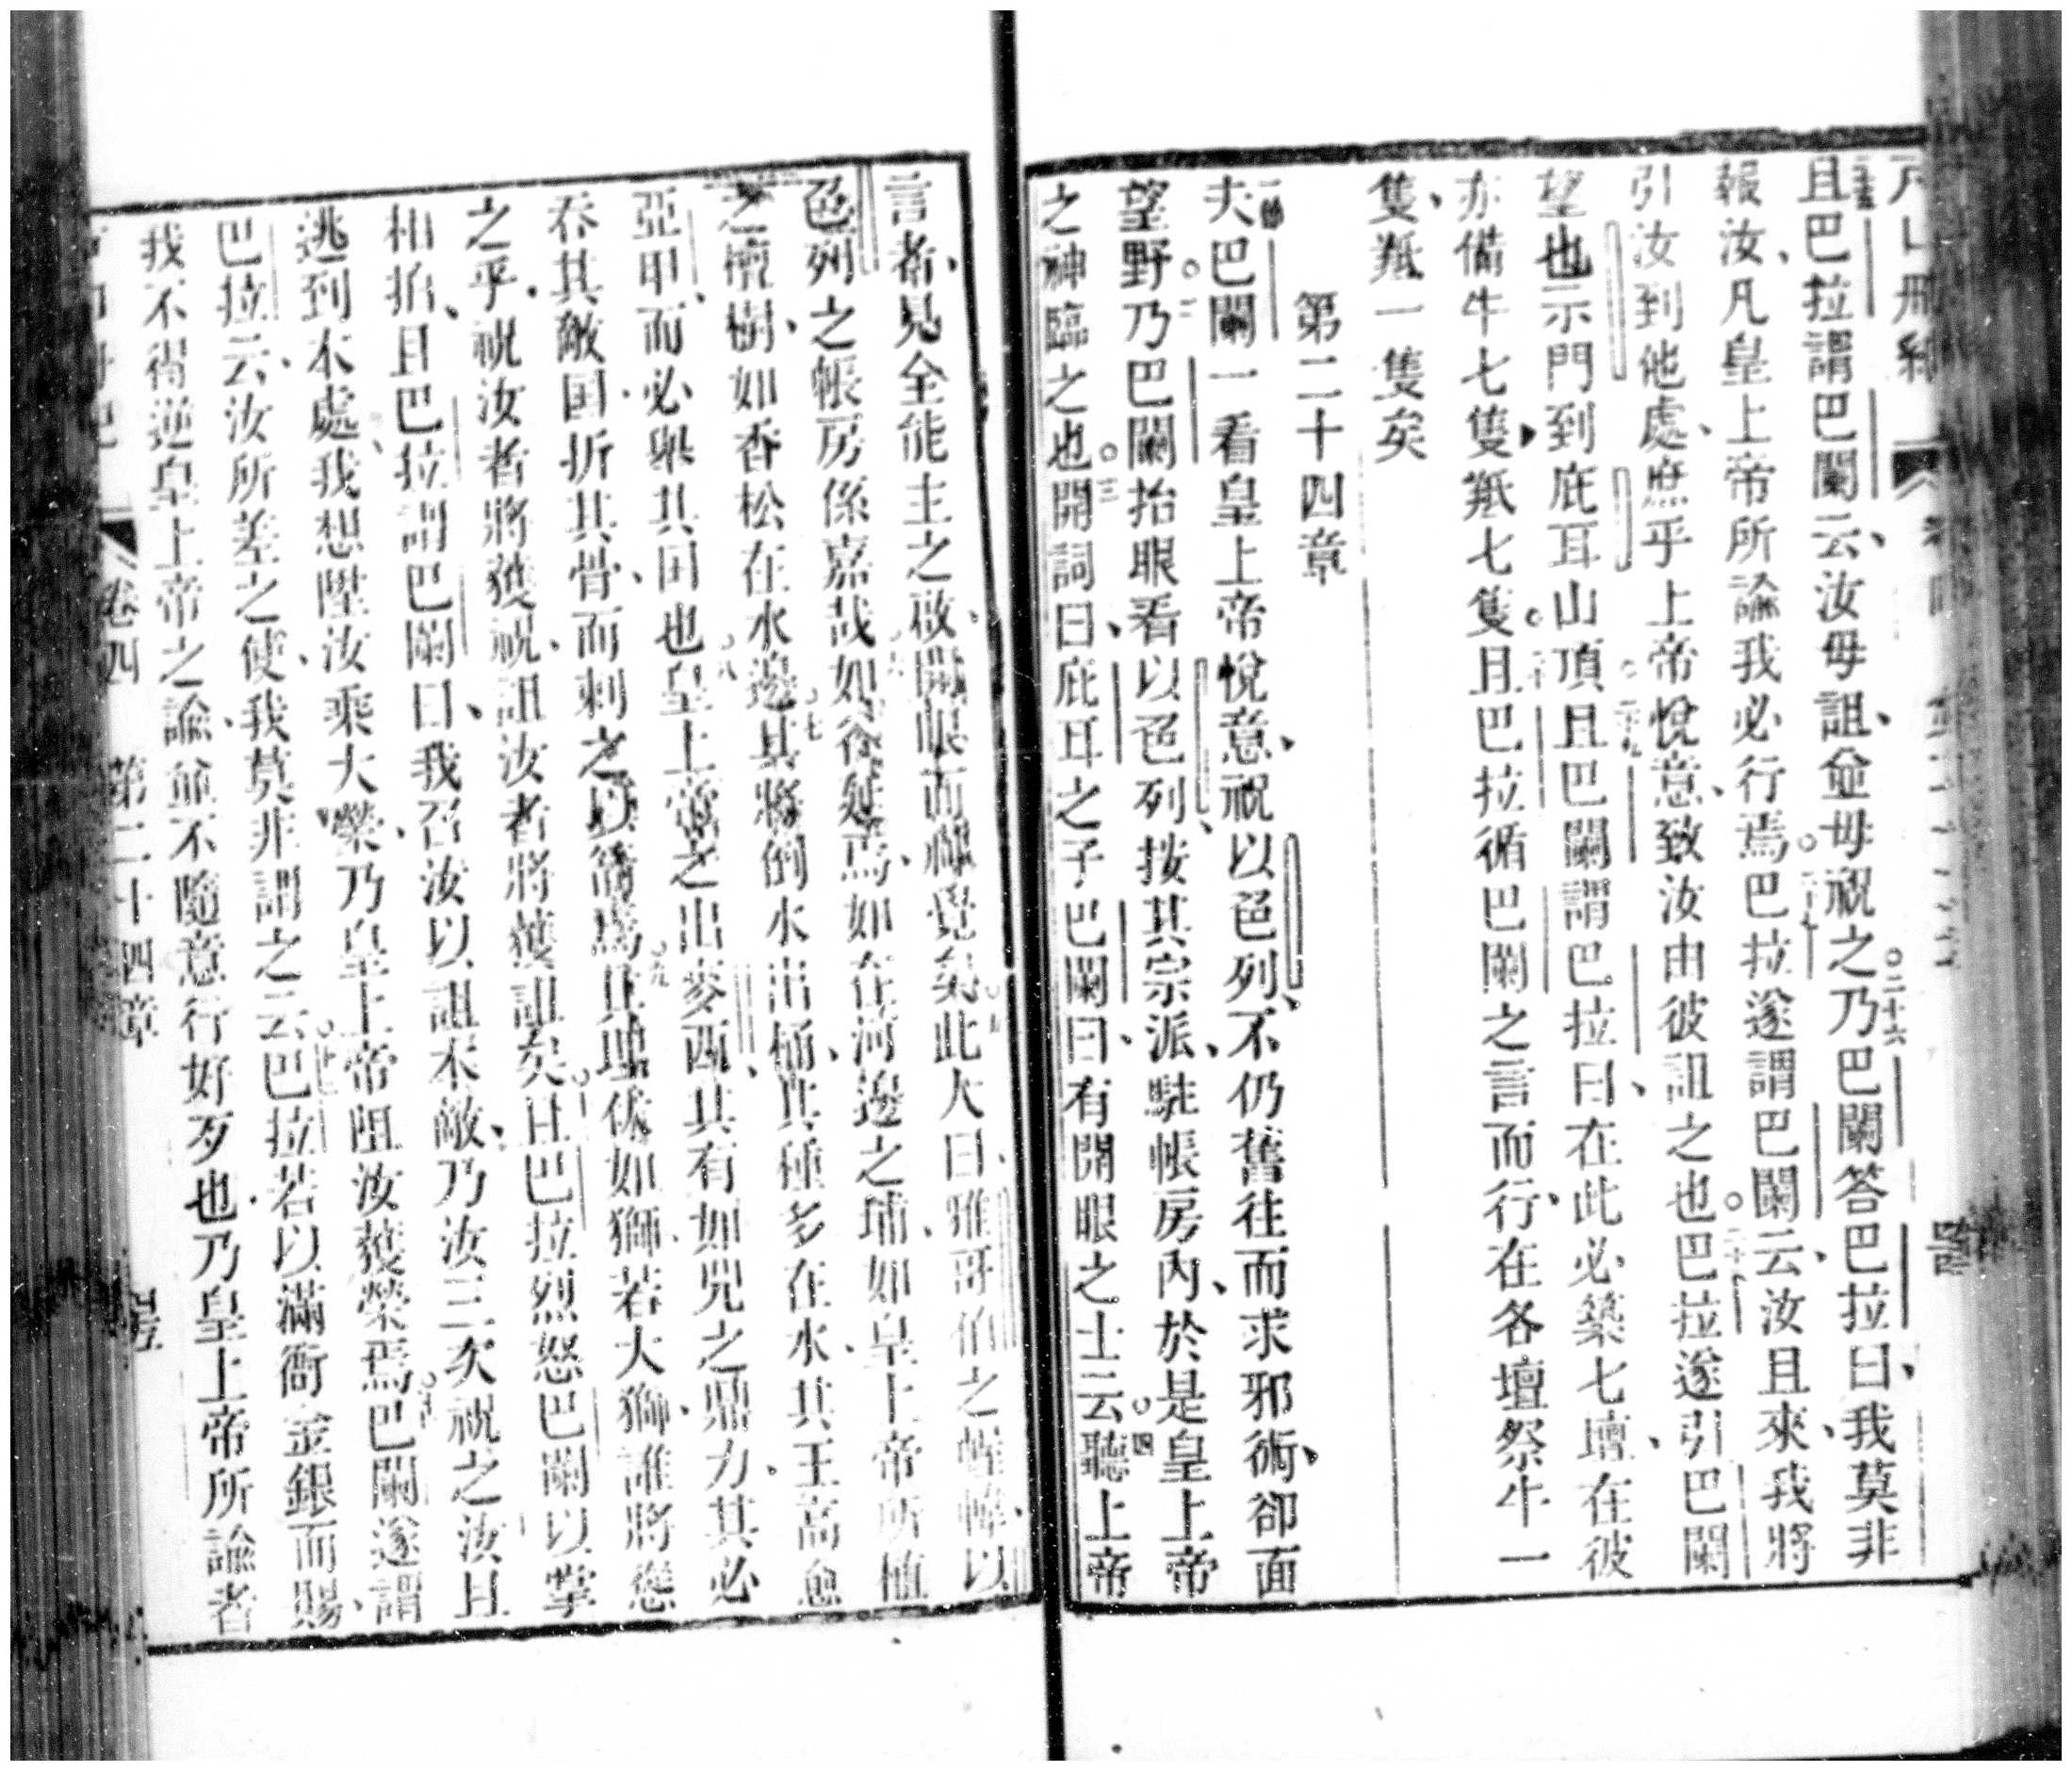 且巴拉謂巴闌云、汝毋詛、並毋祝之乃巴闌答巴拉曰、我莫非
報汝、凡皇上帝所諭我必行焉。巴拉遂謂巴闌云、汝且來、我將
引汝到他處、庶乎上帝悅意、致汝由彼詛之也。巴拉遂引巴闌
望也示門到庇耳山頂。且巴闌謂巴拉曰、在此必築七壇、在彼
亦備牛七隻、羝七隻。且巴拉循巴闌之言而行、在各壇祭牛一
隻、羝一隻矣
第二十四章
夫巴闌一看皇上帝悅意、祝以色列、不仍舊往而求邪術、卻面
望野。乃巴闌抬眼看以色列、按其宗派、駐帳房內、於是皇上帝
之神臨之也。開詞曰、庇耳之子巴闌曰、有開眼之士云。聽上帝
言者、見全能主之啟、開眼而 覺矣。此人曰、雅哥伯之 以
色列之帳房係嘉哉。如 焉、如在河邊之埔、如皇上帝所植
之檀樹、如香松在水邊。其將倒水出桶、其種多在水、其王高愈
亞甲、而必舉其国也。皇上帝之出麥西、其有如兕之鼎力、其必
吞其敵国、折其骨、而刺之以箭焉。其 伏如獅、若大獅、誰將惹
之乎。祝汝者將獲祝、詛汝者將獲詛矣。且巴拉烈怒巴闌、以掌
相拍、且巴拉謂巴闌曰、我召汝以詛本敵、乃汝三次祝之、汝且
逃到本處、我想陞汝乘大榮、乃皇上帝阻汝獲榮焉。巴闌遂謂
巴拉云、汝所差之使、我莫非謂之云。巴拉若以滿衙金銀而賜、
我不得逆皇上帝之諭、並不隨意行好歹也、乃皇上帝所諭者
卷四 第二十四章